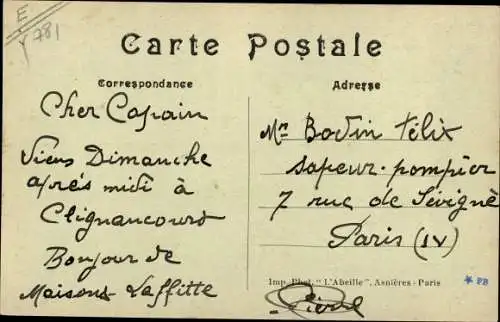 E
Y 781
Carte Postale
Correspondance
Adresse
Cher Copain
Viens Dimanche
après midi à
Clignancourt
Bonjour de
Maisons Laffitte
Mr Bodin Félix
sapeur-pompier
7 rue de Sévigné
Paris (IV)
Imp. Phot. "L'Abeille", Asnières-Paris
* PB